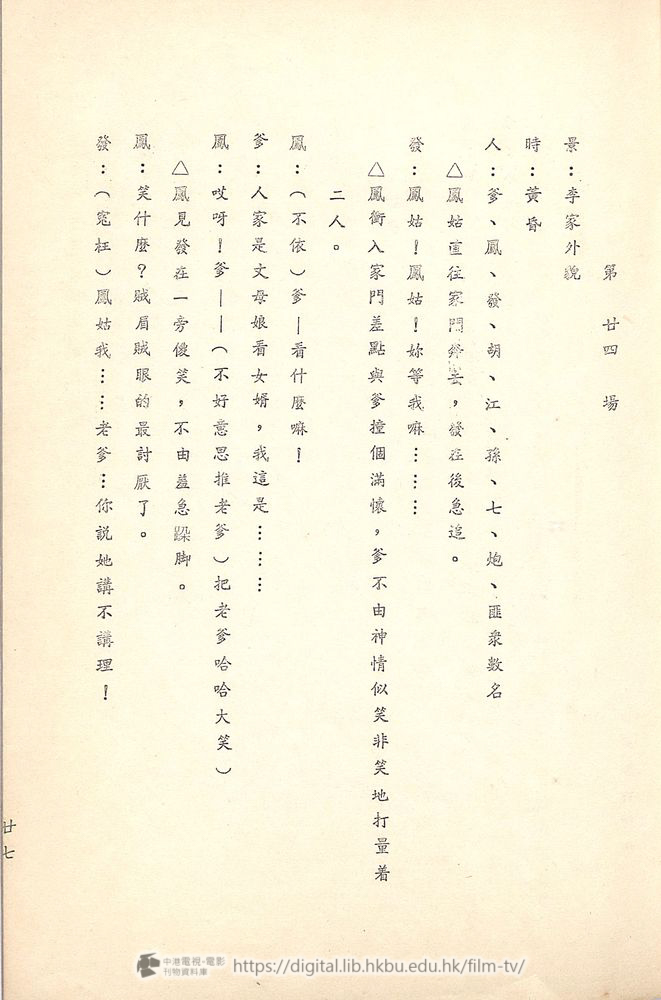 第廿四場
景：李家外貌
時：黃昏
人：爹、鳳、發、胡、江、孫、七、炮、匪衆數名
△鳳姑直往家門奔去，發在後急追。
發：鳳姑！鳳姑！妳等我嘛………
△鳳衝入家門差點與爹撞個滿懷，爹不由神情似笑非笑地打量着
二人。
鳳：（不依）爹—看什麼嘛！
爹：人家是丈母娘看女婿，我這是………
鳳：哎呀！爹——（不好意思推老爹）把老爹哈哈大笑）
△鳳見發在一旁傻笑，不由羞急跺脚。
鳳：笑什麼？賊眉賊眼的最討厭了。
發：（冤枉）鳳姑我……老爹…你説她講不講理！
廿七
中港電視·電影
刊物資料庫
https://digital.lib.hkbu.edu.hk/film-tv/